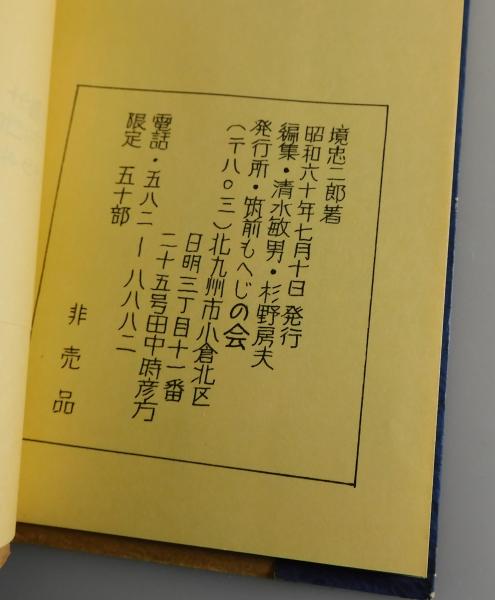 境忠二郎著
昭和六十年七月十日発行
編集・清水敏男・杉野房夫
発行所・筑前もへじの会
(〒八〇三)北九州市小倉北区
日明三丁目十一番
二十五号田中時彦方
電話・五八二ー八八八二
限定 五十部
非売品